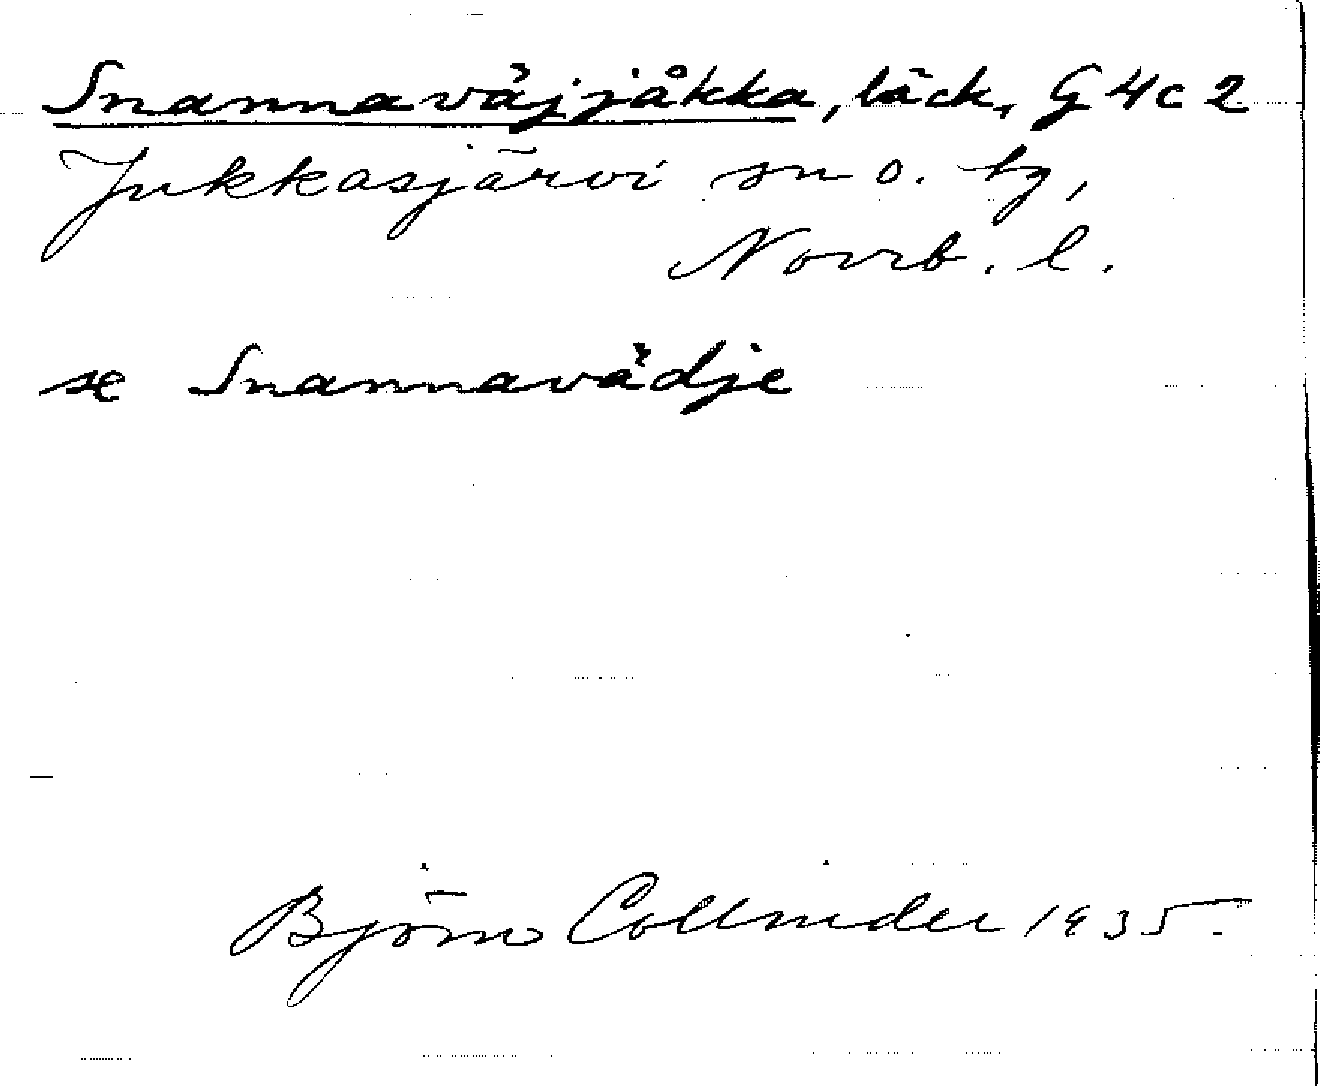 Snannavájjåkka, bäck, G 4 c 2
Jukkasjärvi sn o. tg,
Norrb. l.
se Snannavádje
Björn Collinder 1935.